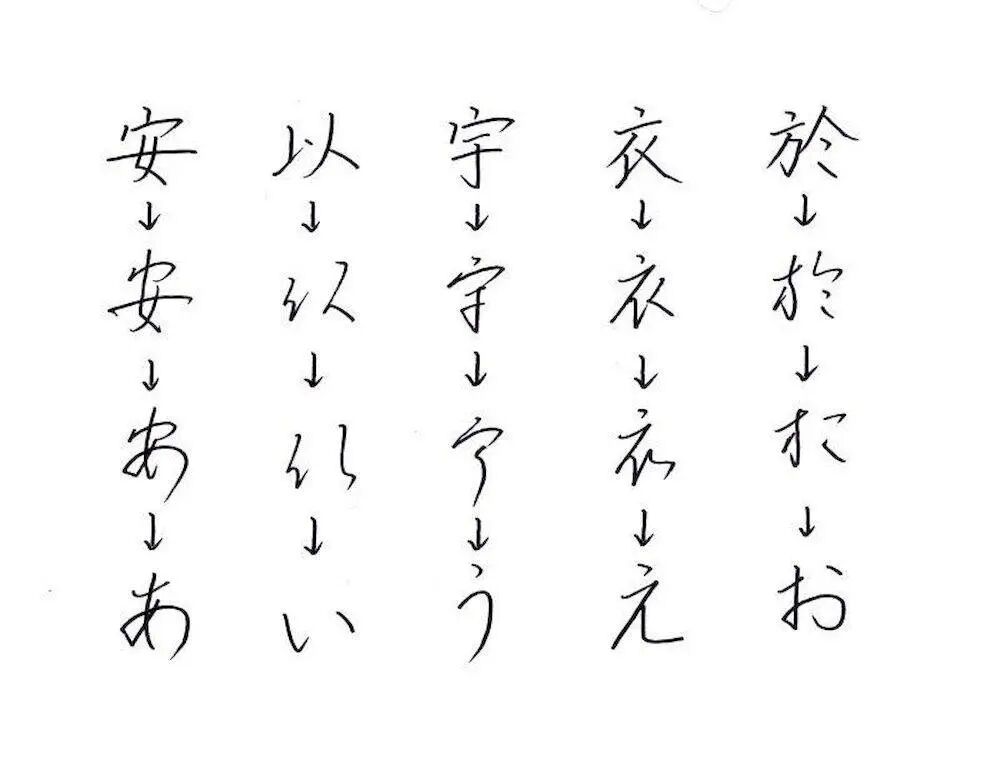 安 以 宇 衣 於
↓ ↓ ↓ ↓ ↓
安 以 宇 衣 於
↓ ↓ ↓ ↓ ↓
あ い う 衣 お
↓ ↓ ↓ ↓ ↓
あ い う え お